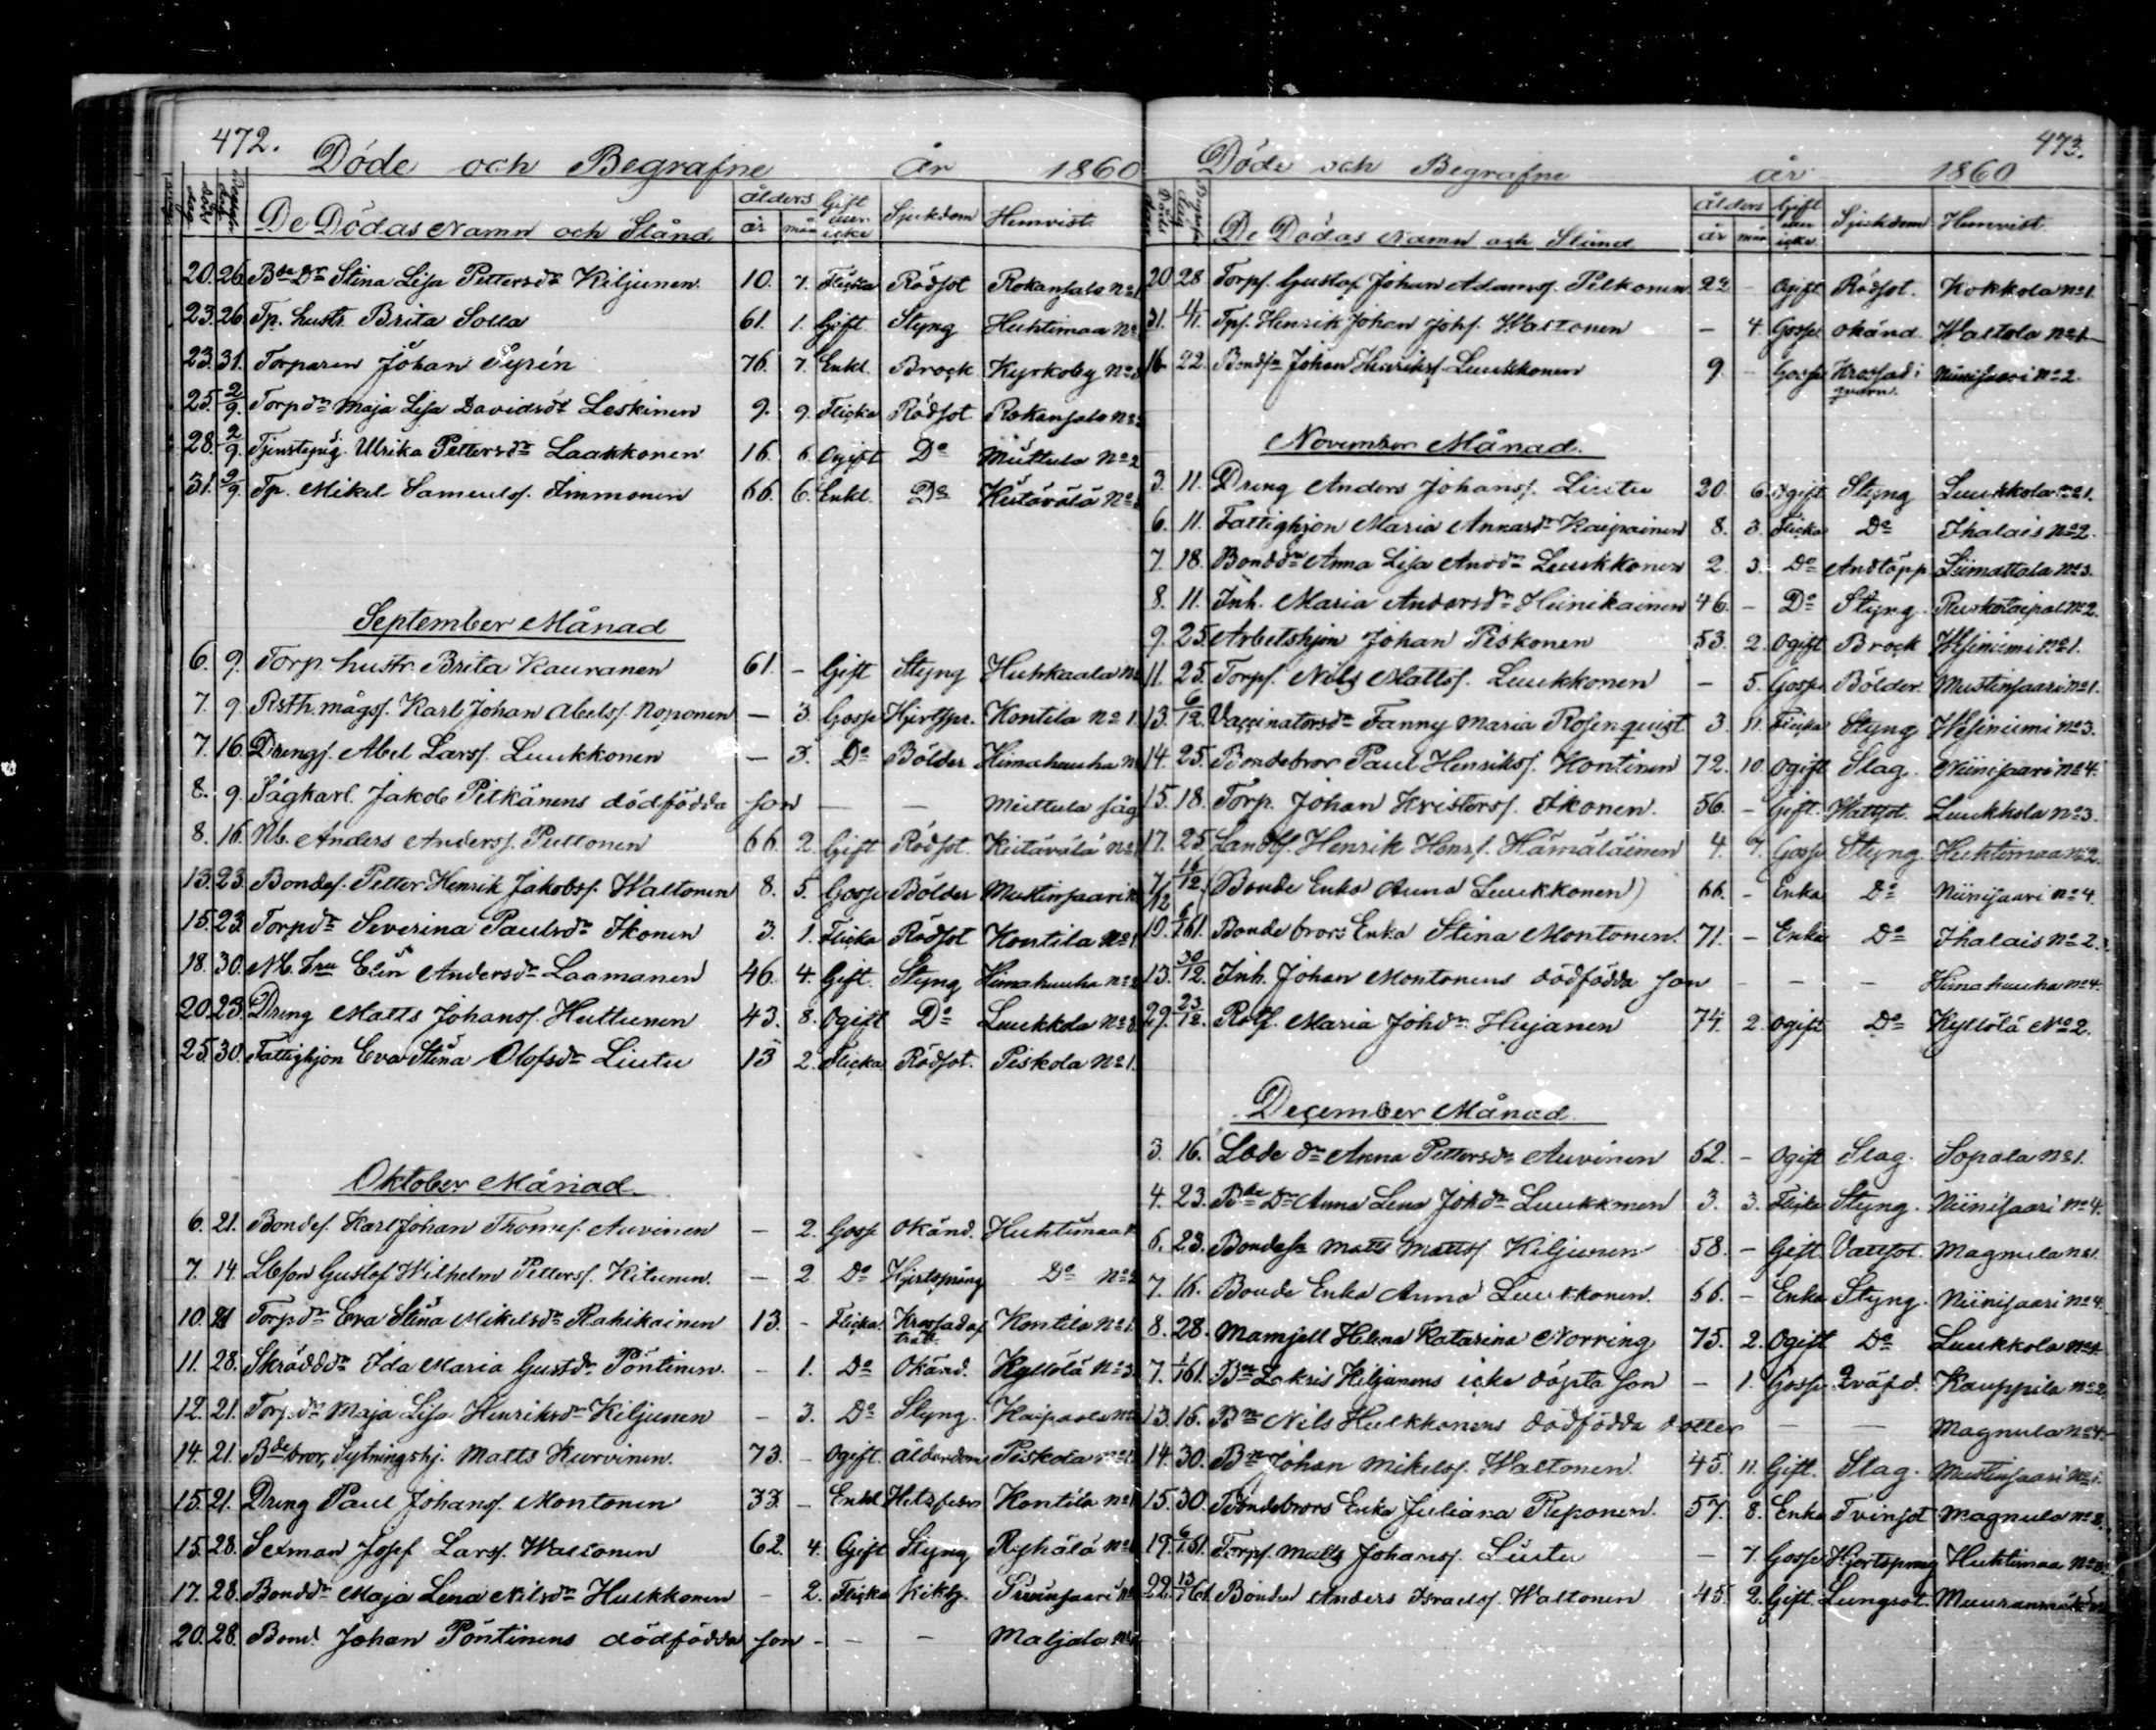 472.
Döde och Begrafne år 1860
De Dödas Namn och Stånd ålders år mån Gift eller icke Sjukdom Hemvist.
20. 26. Bde Dr Stina Lisa Pettersdr Kiljunen 10. 7. Flicka Rödsot Rokansalo No 1
23. 26. Tp. hustr. Brita Solla 61. 1. Gift Styng Huhtimaa No
23. 31. Torparen Johan Syrén 76. 7. Enkl. Brock Kyrkoby No
25. 2/9. Torpdr Maja Lisa Davidsdr Leskinen 9. 9. Flicka Rödsot Rokansalo No
28. 2/9. Tjenstepig. Ulrika Pettersdr Laakkonen 16. 6. Ogift Do Miettula No 2
31. 2/9. Tp. Mikel Samuels. Immonen 66. 6. Enkl. Do Kietävälä No
September Månad
6. 9. Torp. hustr. Brita Kauranen 61. - Gift Styng Huhkaala No
7. 9. Rsth. mågs. Karl Johan Abels. Noponen - 3. Gosse Hjertspr. Kontila No 1.
7. 16. Drengs. Abel Lars. Luukkonen - 3. Do Bölder Himahauha No
8. 9. Sågkarl Jakob Pitkänens dödfödda son - - Miettula såg
8. 16. Nb. Anders Anders. Puttonen 66. 2. Gift Rödsot Kietävälä No
13. 23. Bondes. Petter Henrik Jakobs. Waltonen 8. 5. Gosse Bölder Mustinsaari No
15. 23. Torpdr Severina Paulsdr Ikonen 3. 1. Flicka Rödsot Kontila No 1.
18. 30. Nb. Fru Elin Andersdr Laamanen 46. 4. Gift. Styng Himahauha No 2
20. 23. Dreng Matts Johans. Huttunen 43. 8. Ogift Do Luukkola No 3.
25. 30. Fattighjon Eva Stina Olofsdr Liutu 13 2. Flicka Rödsot. Piskola No 1.
Oktober Månad
6. 21. Bondes. Karl Johan Thomes. Auvinen - 2. Gosse Okänd. Huhtimaa
7. 14. Lbson Gustof Wilhelm Petters. Kitunen. - 2 Do Hjertspring Do No 2
10. 21 Torpdr Eva Stina Mikelsdr Rahikainen 13. - Flicka. Krossad af träd. Kontila No 1.
11. 28. Skräddr Ida Maria Gustdr Pöntinen. - 1. Do Okänd. Kyllölä No 3
12. 21. Torpdr Maja Lisa Henriksdr Kiljunen - 3. Do Styng. Kaipaala No
14. 21. Bde bror, Sytningshj. Matts Kurvinen. 73. - Ogift. ålderdom Piskola No 1.
15. 21. Dreng Paul Johans. Montonen 33. - Enkl Hetsfeber Kontila No 1
15. 28. Sexman Josef Lars. Waltonen 62. 4. Gift Styng Ryhälä No
17. 28. Bonddr Maja Lena Nilsdr Hulkkonen - 2. Flicka Kikh. No
20. 28. Bond. Johan Pöntinens dödfödda son - - - Maljala No
473.
Döde och Begrafne år 1860
De Dödas Namn och Stånd ålders år mån Gift eller icke Sjukdom Hemvist.
20. 28 Torps. Gustaf Johan Adams. Pelkonen 22 - Ogift Rödsot. Kokkola No 1.
31. 4/11. Tps. Henrik Johan Johs. Waltonen - 4. Gosse okänd. Waltola No 1
16 22. Bonds. Johan Henriks. Luukkonen 9 - Gosse Krossad i qvarn. Niinisaari No 2.
November Månad.
3. 11. Dreng Anders Johans. Liutu 20. 6. Ogift Styng Luukkola No 1.
6. 11. Fattighjon Maria Annasdr Kaipainen 8. 3. Flicka Do Ihalais No 2.
7. 18. Bonddr Anna Lisa Andsdr Luukkonen 2. 3. Do Andtäpp Liimattala No 3.
8. 11. Inh. Maria Andersdr Heinikainen 46. - Do Styng. Ruokotaipal No 2.
9. 25. Arbetshjon Johan Piskonen 53. 2. Ogift Brock Wesiniemi No 1.
11. 25. Torps. Nils Matts. Luukkonen - 5. Gosse Bölder. Mustinsaari No 1.
13. 6/12. Vaccinatorsdr Fanny Maria Rosenquist 3 11. Flicka Styng Wesiniemi No 3.
14. 25. Bondebror Paul Henriks. Kontinen 72. 10. Ogift Slag. Niinisaari No 4.
15. 18. Torp. Johan Kristers. Ikonen. 56. - Gift. Wattsot. Luukkola No 3.
17. 25. Landbs. Henrik Henrs. Hämäläinen 4. 7. Gosse Styng. Huhtimaa No 2.
7/12 16/12 (Bonde Enka Anna Luukkonen) 66. - Enka Do Niinisaari No 4.
19. 6/1 61. Bonde brors Enka Stina Montonen. 71. - Enka Do Ihalais No 2.
13. 30/12. Inh. Johan Montonens dödfödda son - - - Himahauha No 4.
29. 23/12. Rotf. Maria Johdr Hujanen 74. 2. Ogift Do Kyllölä No 2.
December Månad
3. 16. Lbde dr Anna Pettersdr Auvinen 52. - Ogift Slag. Sopala No 1.
4. 23. Bde Dr Anna Lena Johdr Luukkonen 3. 3. Flicka Styng. Niinisaari No 4.
6. 23. Matts Matts. Kiljunen 58. - Gift Vattsot. Magnula No 1.
7. 16. Bonde Enka Anna Luukkonen. 66. - Enka Styng. Niinisaari No 4.
8. 28. Mamsell Helena Katarina Norring 75. 2. Ogift Do Luukkola No 4.
7. 1/1 61. Bn Zakris Kiljunens icke döpta son - 1. Gosse Qväfd. Kauppila No 2
13. 16. Bn Nils Hulkkonens dödfödda dotter - - Magnula No 4.
14. 30. Bn Johan Mikels. Waltonen 45. 11. Gift. Slag. Mustinsaari No 1.
15. 30. Bondebrors Enka Juliana Reponen. 57. 8. Enka Tvinsot Magnula No 2.
19. 6/1 61. Torps. Matts Johans. Liutu - 7. Gosse Hjertsprang Huhtimaa No 3.
22. 13/1 61. Bonden Anders Israels. Waltonen 45. 2. Gift. Lungsot.